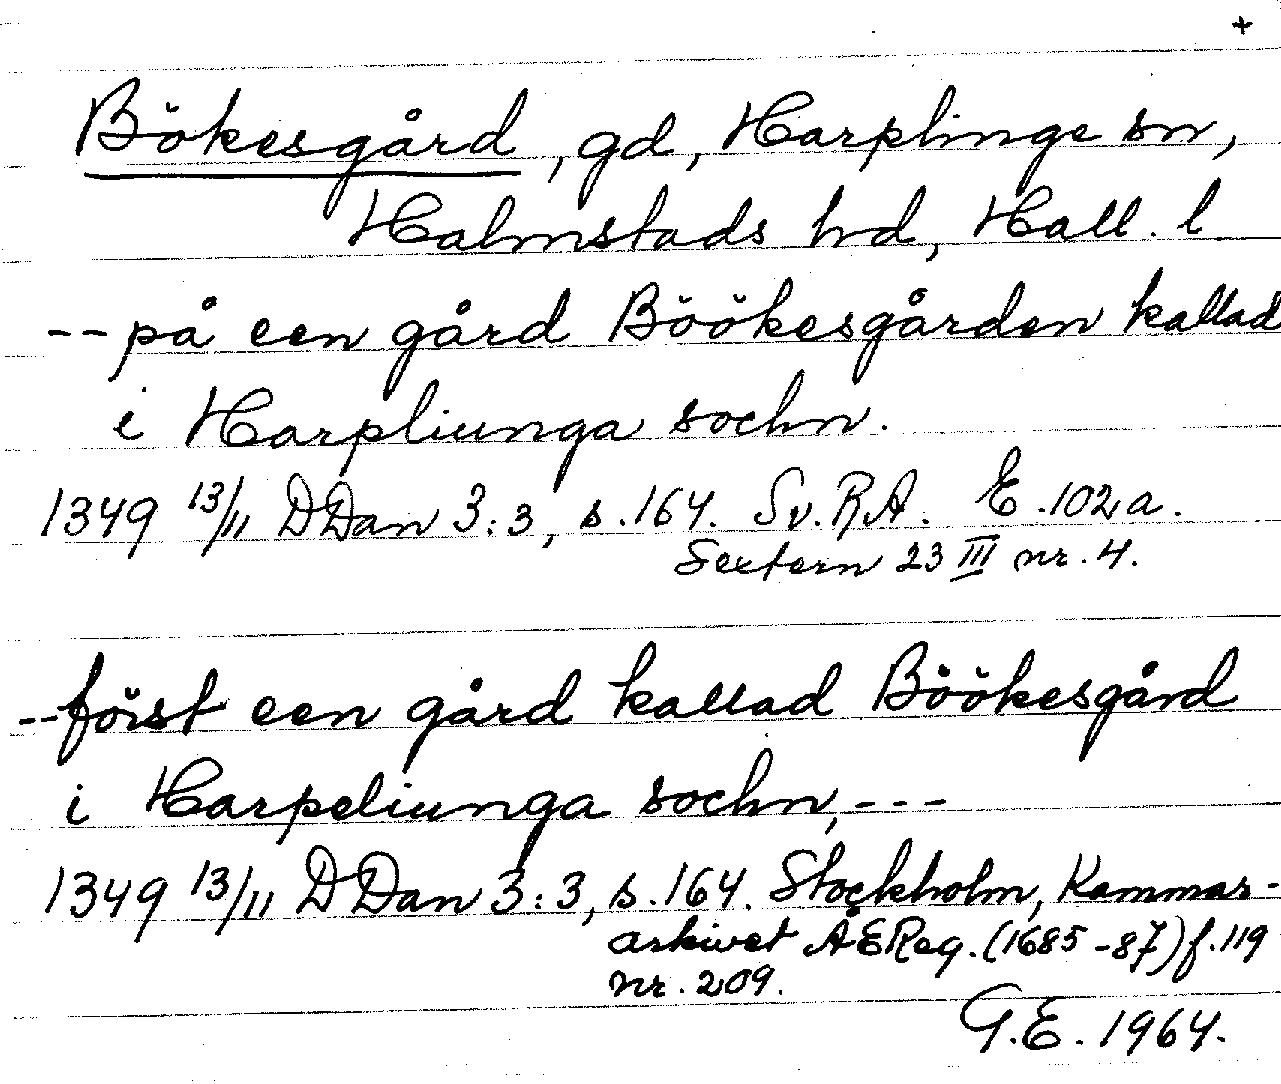 +
Bökesgård, gd, Harplinge sn,
Halmstads hd, Hall. l
-- på een gård Böökesgården kallad
i Harpliunga sochn.
1349 13/11 DDan 3:3, s. 164. Sv. RA. E. 102a.
Sextern 23 III nr. 4.
-- först een gård kallad Böökesgård
i Harpeliunga sochn, ---
1349 13/11 DDan 3:3, s. 164. Stockholm, Kammar-
arkivet ÄEReg. (1685-87) f. 119
nr. 209.
G.E. 1964.